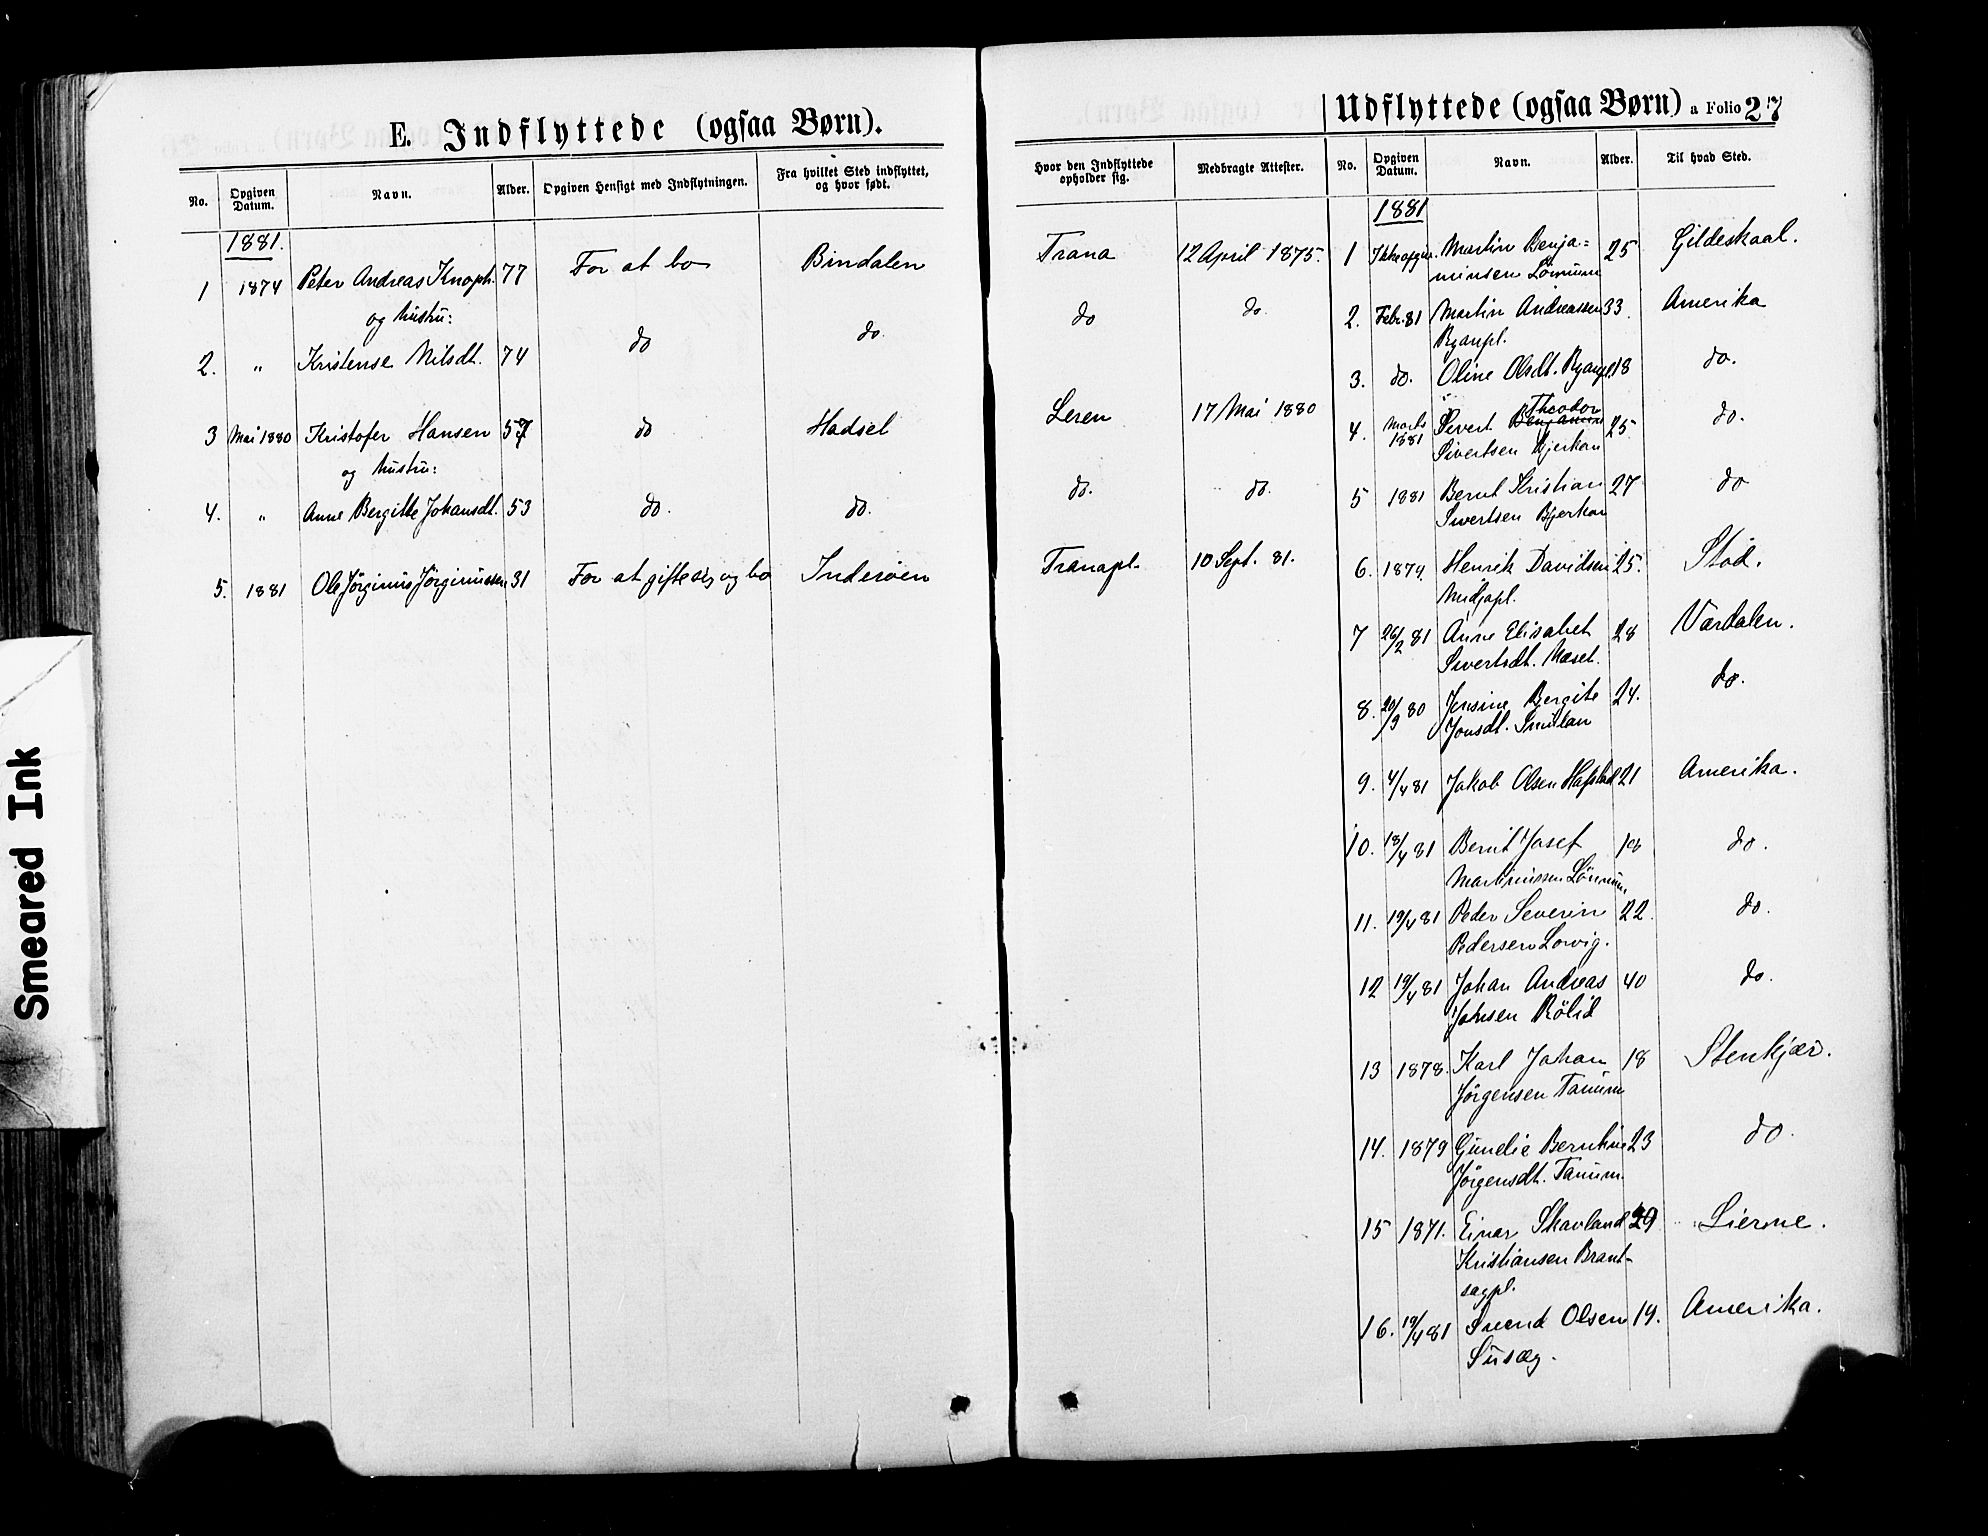 E. Indflyttede (ogsaa Børn).
No. Opgiven Datum. Navn. Alder. Opgiven Hensigt med Indflytningen. Fra hvilket Sted indflyttet, og hvor født.
1881.
1 1874 Peter Andreas Knoph. 77 For at bo Bindalen
og hustru:
2. " Kristense Nilsdt. 74 do do.
3 Mai 1880 Kristofer Hansen 57 do Hadsel
og hustru:
4. " Anne Bergitte Johansdt. 53 do. do.
5. 1881 Ole Jörginus Jörginussen 31 For at gifte sig og bo Inderøen
Udflyttede (ogsaa Børn) a Folio 27
Hvor den Indflyttede opholder sig. Medbragte Attester. No. Opgiven Datum. Navn. Alder. Til hvad Sted.
1881
Trana 12 April 1875. 1 Ikke opgiv. Martin Benja= 25 Gildeskaal.
minsen Lönnum
do do. 2. Febr. 81 Martin Andreassen 33. Amerika
Ryanpl.
3. do. Oline Olsdt. Ryanpl. 18 do.
Leren 17 Mai 1880 4. Marts 1881 Sivert Theodor 25. do.
Sivertsen Bjerkan
do. do. 5 1881 Bernt Kristian 27 do
Sivertsen Bjerkan
Tranapl. 10 Sept. 81. 6. 1874. Henrik Davidsen 25. Stod.
Midjapl.
7 26/2 81 Anne Elisabet 28 Værdalen.
Sivertsdt. Mæset.
8. 20/9 80 Jensine Bergite 24. do.
Jonsdt. Smulan
9. 4/4 81 Jakob Olsen Hafstad 21 Amerika.
10. 18/4 81 Bernt Josef do.
Martinussen Lönnum
11. 19/4 81 Peder Severin 22. do.
Pedersen Lorvig.
12 19/4 81 Johan Andreas 40 do.
Johnsen Rölid
13 1878. Karl Johan 18 Stenkjær.
Jörgensen Tanum
14. 1879 Gunelie Berntine 23 do.
Jörgensdt. Tanum.
15 1871. Einar Skavland 29 Lierne.
Kristiansen Brant-
sagpl.
16. 19/4 81 Svend Olsen 19. Amerika.
Susæg.
Smeared Ink